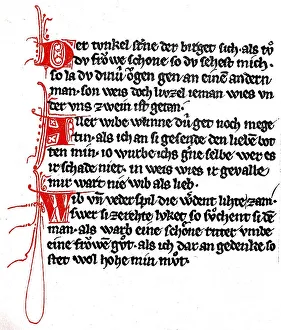 Der tunkel sterne der birget sich. als tů
dv frŏwe schone so dv sehest mich.
so la dv dinú ŏgen gen an einen andern
man. son weis doch lúzel ieman wies
vnder vns zwein ist getan.
Aller wibe wúnne dú get noch mege
tin. als ich an si gesende den lieben bot
ten min. io wurbe ichs gerne selbe wer es
ir schade niet. in weis wies ir gevalle
mir wart nie wib als lieb.
Wib vñ veder spil die werdent lihte zam.
swer si ze rehte lucket so sůchent si den
man. als warb ein schŏne ritter vmbe
eine frŏwen gůt. als ich dar an gedenke so
stet wol hohe min můt.